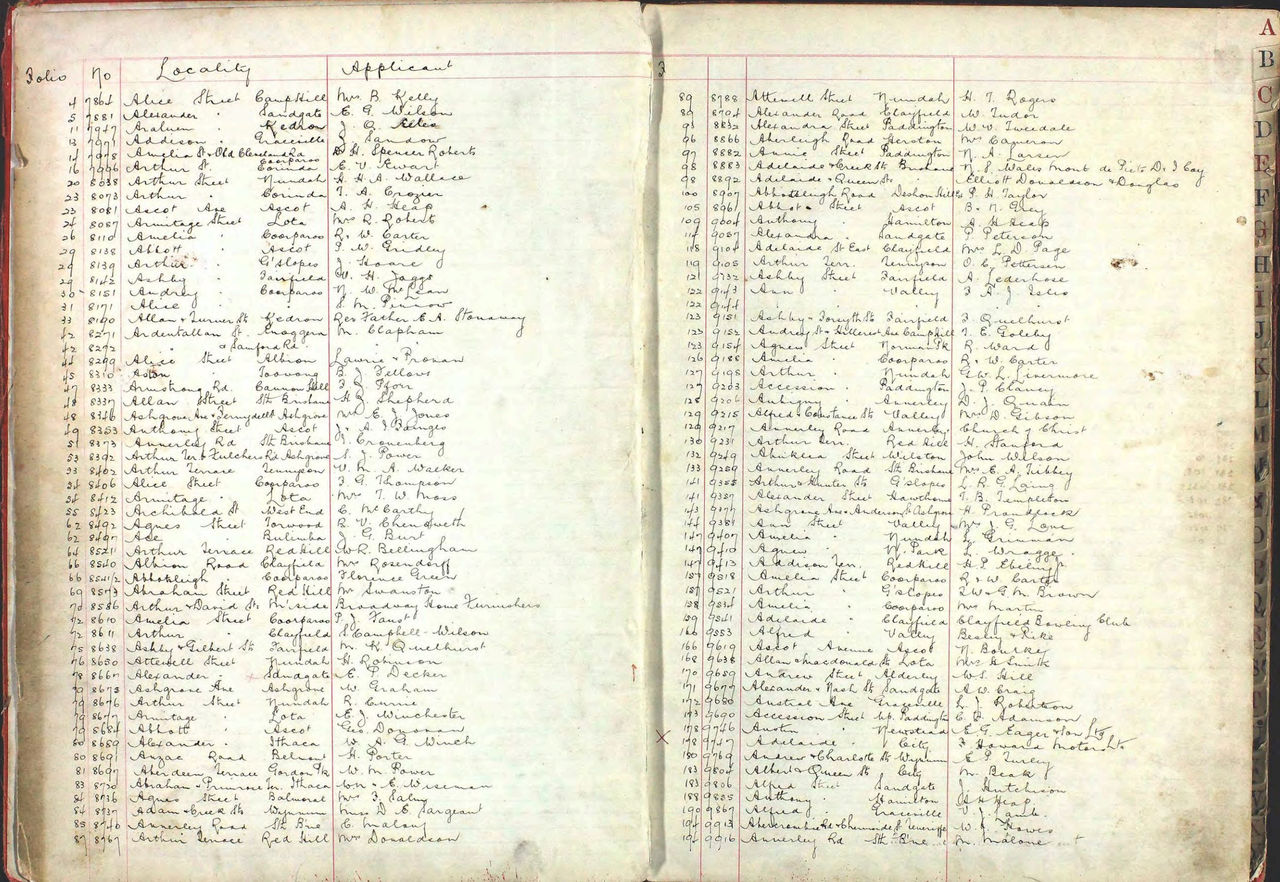 Folio No Locality Applicant
4 7864 Alice Street Camp Hill Mrs B. Kelly
5 7881 Alexander " Sandgate E. G. Wilson
11 7947 Araluen " Kedron J. Q.
13 7971 Addison " Graceville J. Sandow
14 7978 Amelia St & Old Cleveland Rd Coorparoo H. Spencer Roberts
16 7996 Arthur St. Corinda E. V. Ewart
20 8038 Arthur Street Nundah H. A. Wallace
23 8073 Arthur " Corinda T. A. Crozier
23 8081 Ascot Ave Ascot A. H. Heap
24 8087 Armitage Street Lota Mrs R. Roberts
26 8110 Amelia " Coorparoo R. W. Carter
29 8138 Abbott " Ascot P. W. Gridley
29 8139 Arthur " G'slopes J. Hoare
29 8142 Ashby " Fairfield W. H. Jaggs
30 8151 Andrey " Coorparoo N. W. McLean
31 8171 Alice " S. M. Pinnow
33 8190 Allan & Turner St Kedron Rev Father E. A. Stonaway
42 8271 Ardentallan St. Enoggera M. Clapham
42 8272 & Samford Rd
44 8299 Alice Street Albion Lawrie & Pronan
45 8310 Aston " Toowong B. J. Fellows
47 8333 Armstrong Rd. Cannon Hill F. J. Pforr
48 8337 Allan Street Sth Brisbane H. J. Shepherd
48 8346 Ashgrove Ave & Fernydell St Ashgrove Mrs E. J. Jones
49 8353 Anthony Street Ascot J. A.
51 8373 Annerley Rd Sth Brisbane J. Cronenberg
53 8392 Arthur Terr & Fulchers Rd Ashgrove S. J. Power
53 8402 Arthur Terrace Tennyson V. M. A. Walker
54 8406 Alice Street Coorparoo F. G. Thompson
54 8412 Armitage " Lota Mrs T. W. Moss
55 8423 Archibald St West End C. McCarthy
62 8492 Agnes Street Torwood R. V. Chenoweth
62 8497 Ace " Bulimba J. G. Burt
64 8521 Arthur Terrace Red Hill W. R. Bellingham
66 8540 Albion Road Clayfield Mrs Rosendorff
66 8541/2 Abbotsleigh " Coorparoo Florence Green
69 8573 Abraham Street Red Hill Mr Swanston
70 8586 Arthur & David St M'side Broadway Home Furnishers
72 8610 Amelia Street Coorparoo P. J. Faust
72 8611 Arthur " Clayfield S Campbell-Wilson
75 8638 Ashby & Gilbert St Fairfield M. K. Quelhurst
76 8650 Attewell Street Nundah H. Robinson
78 8667 Alexander " Sandgate E. P. Decker
79 8673 Ashgrove Ave Ashgrove W. Graham
79 8676 Arthur Street Nundah R. Currie
79 8677 Armitage " Lota E. J. Winchester
79 8684 Abbott " Ascot Geo Donovan
80 8689 Alexander " Ithaca W. A. G. Winch
80 8691 Anzac Road Belmont H. Porter
81 8697 Aberdeen Terrace Gordon Pk W. M. Power
83 8720 Abraham & Primrose Ter. Ithaca Wm & E. Wiseman
84 8736 Agnes Street Balmoral Mrs F. Salmy
84 8737 Adam & Creek Sts Wynnum Miss D. E. Sargeant
85 8740 Annerley Road Sth Bne E. Malouf
87 8767 Arthur Terrace Red Hill Mrs Donaldson
3
89 8788 Attewell Street Nundah H. T. Rogers
89 8794 Alexander Road Clayfield W. Tudor
93 8832 Alexandra Street Paddington W. V. Tweedale
96 8866 Aberleigh Road Herston Mrs Cameron
97 8882 Annie Street Paddington N. A. Larsen
98 8883 Adelaide & Creek St Brisbane N. S. Wales Mont de Piete D. & I Coy
98 8892 Adelaide & Queen St " Elliott Donaldson & Douglas
100 8907 Abbotsleigh Road Deshon Hill P. H. Taylor
105 8961 Abbott Street Ascot B. N. Grey
109 9004 Anthony " Hamilton A H Heap
114 9087 Alexandra " Sandgate P. Peterson
118 9104 Adelaide St East Clayfield Mrs L. D. Page
119 9105 Arthur Terr. Tennyson O. C. Pettersen
121 9132 Ashby Street Fairfield A. Federhose
122 9143 Ann " Valley F. A. J Isles
122 9144 " " "
123 9151 Ashby & Forsyth St Fairfield F. Quelhurst
123 9152 Andrey St & Hillcrest Ave Camp Hill T. E. Goleby
123 9154 Agnew Street Norman Pk R. Ward
126 9188 Amelia " Coorparoo R. W. Carter
127 9198 Arthur " Nundah G. W. L. Livermore
127 9203 Accession " Paddington J. P. Clancy
128 9206 Aubigny " Annerley D. J. Quahn
129 9215 Alfred & Constance Sts Valley Mrs D. Gibson
129 9217 Annerley Road Annerley Church of Christ
130 9231 Arthur Terr. Red Hill H. Stanford
132 9249 Street Wilston John Wilson
133 9259 Annerley Road Sth Brisbane Mrs E. A. Tibbey
141 9355 Arthur & Hunter St G'slopes L. R. G. Laing
141 9357 Alexander Street Hawthorne T. B. Templeton
143 9377 Ashgrove Ave & Anderson St Ashgrove H. Prandleck
144 9381 Ann Street Valley Mrs J. G. Lane
147 9407 Amelia " Nundah L. Grinman
147 9410 Agnew " N. Park L. Wragge
147 9413 Addison Terr. Red Hill H. P. Ebeling
157 9518 Amelia Street Coorparoo R. W. Carter
157 9521 Arthur " G'slopes S. W. & G. M. Brown
158 9534 Amelia " Coorparoo Mrs Martin
159 9541 Adelaide " Clayfield Clayfield Bowling Club
160 9553 Alfred " Valley Besley & Pike
166 9619 Ascot Avenue Ascot N. Boulkey
168 9638 Allan & Macdonald St Lota Mrs G Smith
170 9659 Andrew Street Alderley W. S. Hill
171 9677 Alexander & Nash St Sandgate A. W. Craig
172 9680 Austral Ave Graceville L. J. Robertson
173 9690 Accession Street Up. Paddington C. F. Adamson
178 9746 Austin " Newstead E. G. Eager & Son Ltd
178 9747 Adelaide " City F. Howard Motors Ltd
180 9769 Andrew & Charlotte St Wynnum E. P. Turley
183 9804 Albert & Queen St City M. Beak
183 9806 Alfred Street Sandgate J. Hutchison
188 9855 Anthony " Hamilton A H Heap
190 9867 Alfred " Graceville V. J. Lamb.
194 9913 Abercrombie Rd & Chermside St Teneriffe W. J. Howes
194 9916 Annerley Rd Sth Bne M. Malone
A
B
C
D
E
F
G
H
I
J
K
L
M
N
O
P
Q
R
S
T